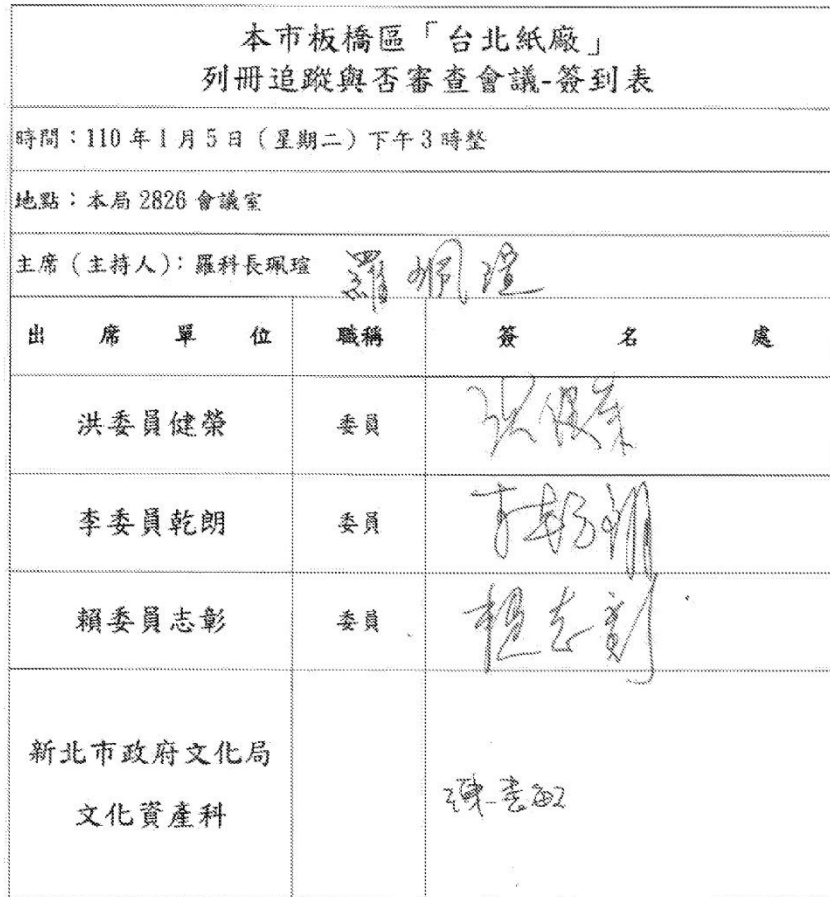 本市板橋區「台北紙廠」
列冊追蹤與否審查會議-簽到表
時間：110年1月5日（星期二）下午3時整
地點：本局2826會議室
主席（主持人）：羅科長珮瑄 羅珮瑄
出席單位 職稱 簽名處
洪委員健榮 委員 洪健榮
李委員乾朗 委員 李乾朗
賴委員志彰 委員 賴志彰
新北市政府文化局
文化資產科